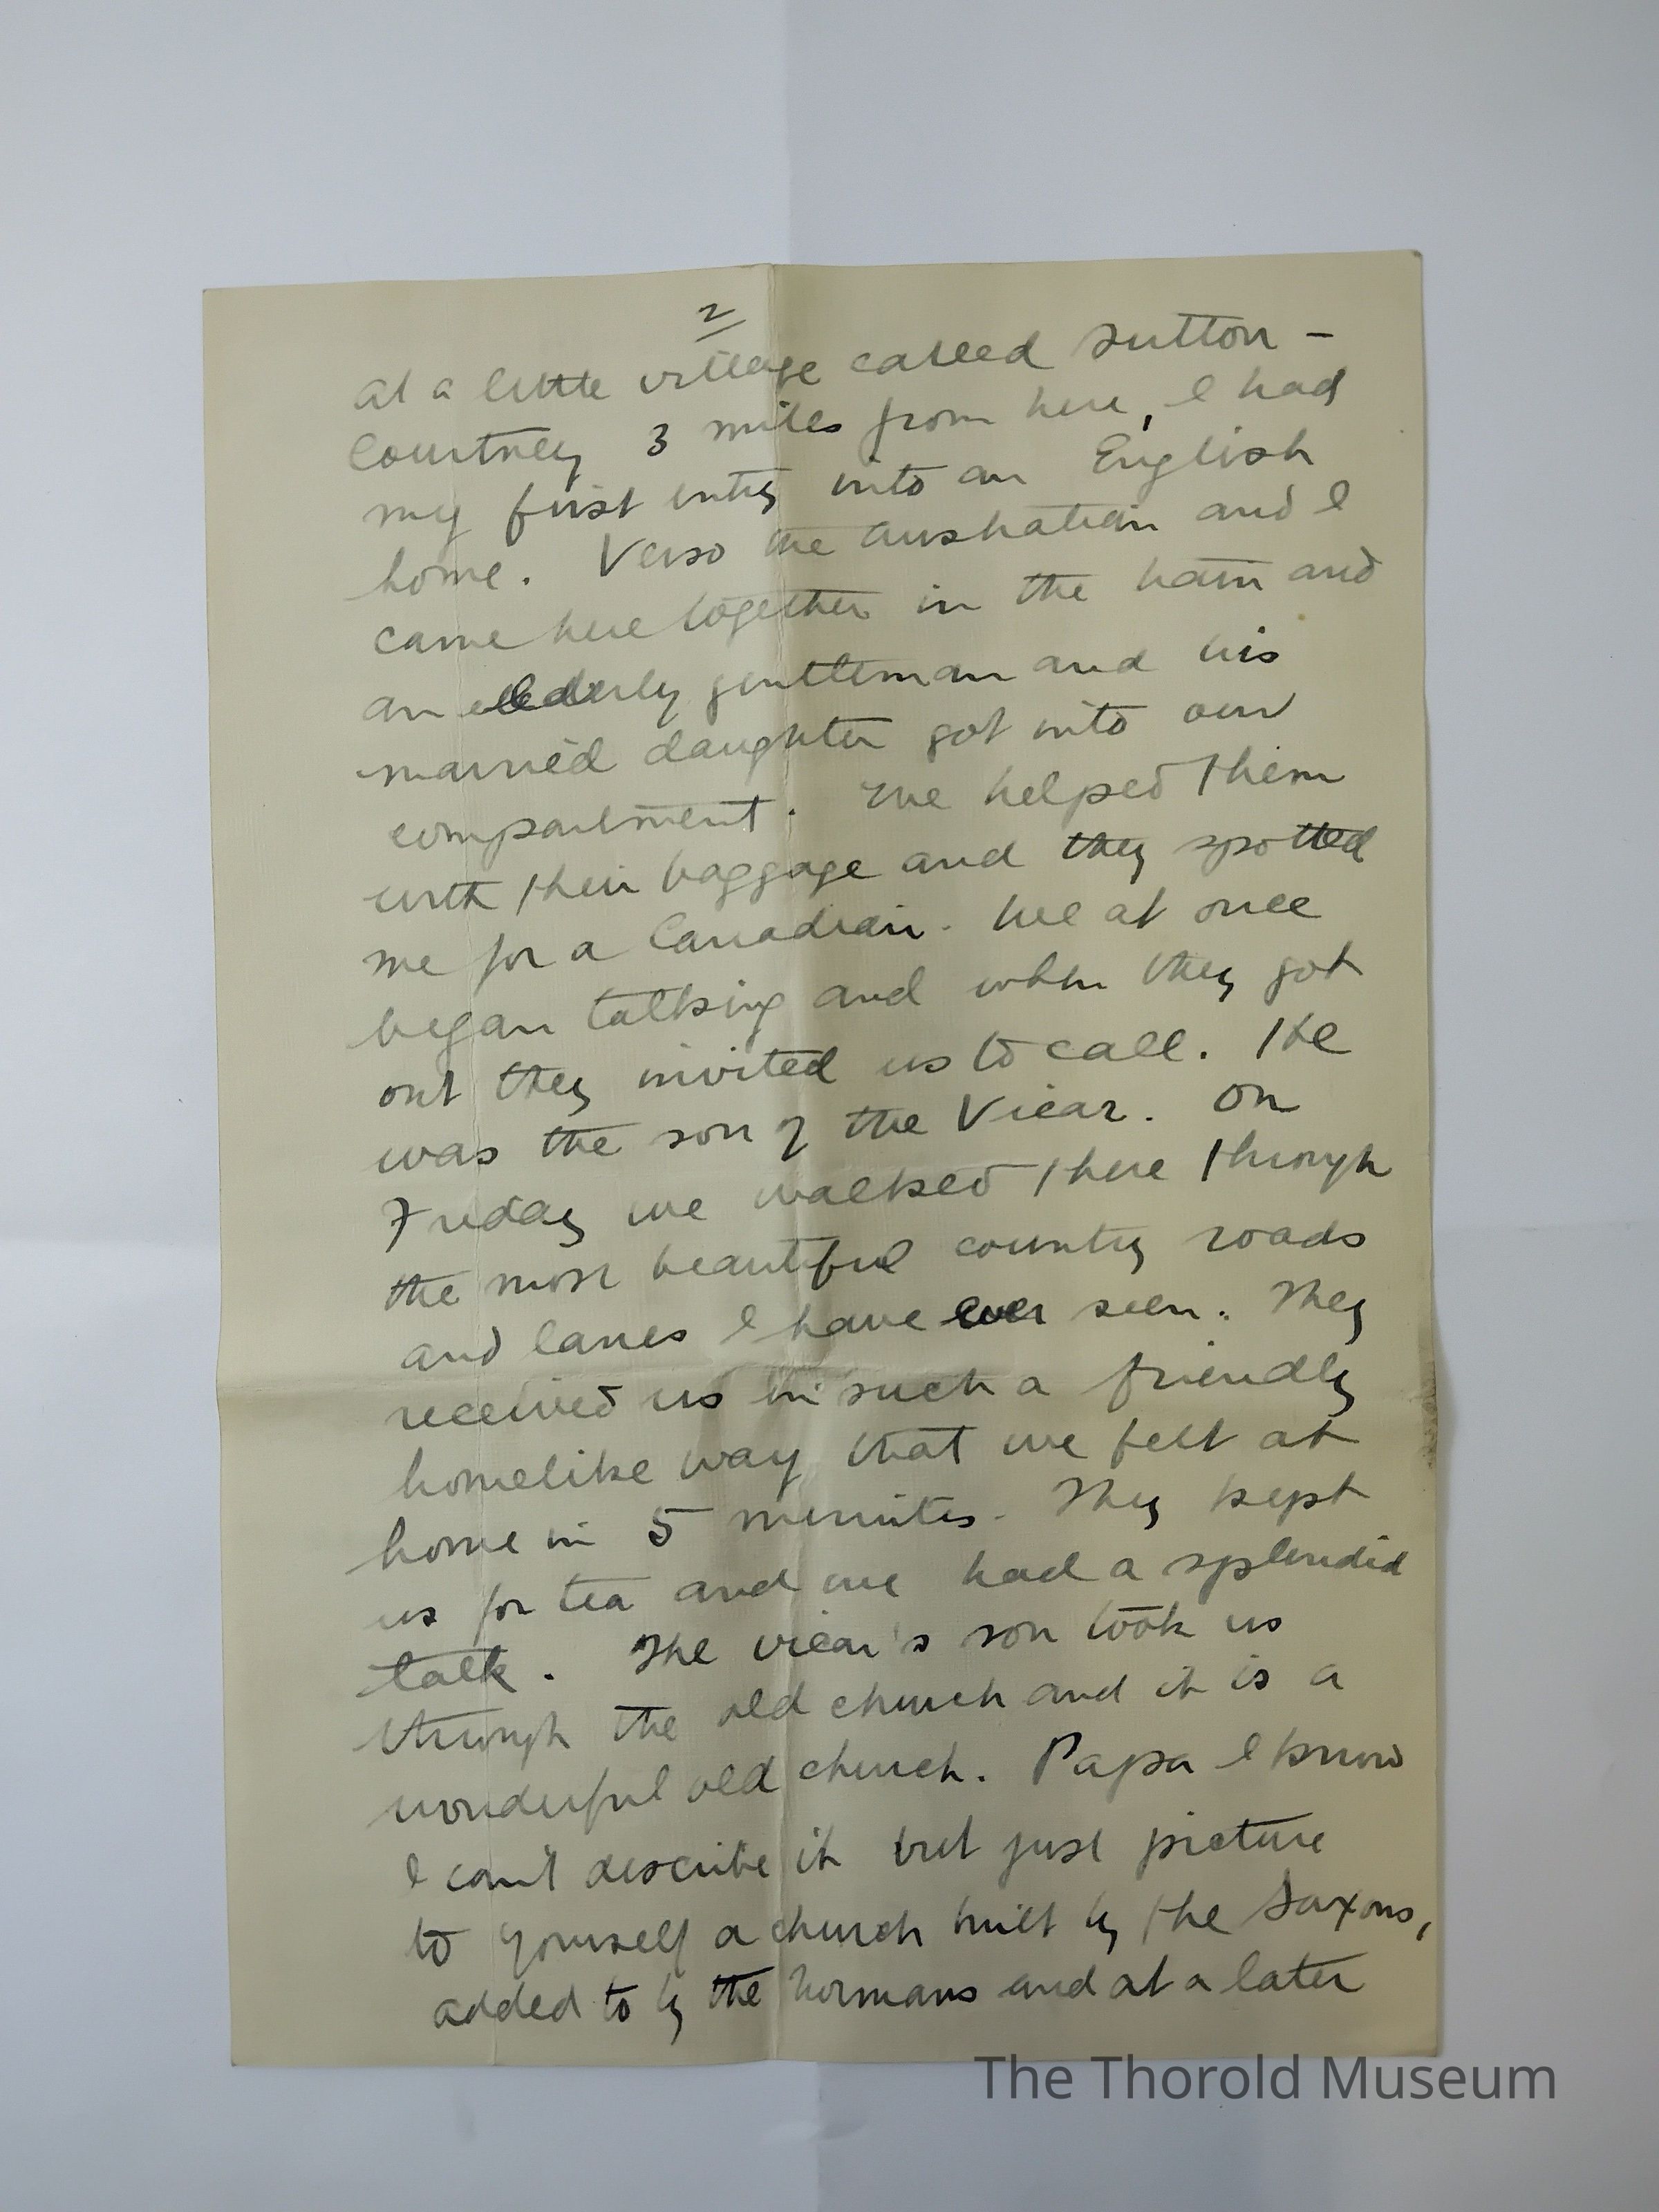 2
at a little village called Sutton –
Courtney 3 miles from here, I had
my first entry into an English
home. Verso the Australian and I
came here together in the train and
an elderly gentleman and his
married daughter got into our
compartment. We helped them
with their baggage and they spotted
me for a Canadian. We at once
began talking and when they got
out they invited us to call. He
was the son of the Vicar. On
Friday we walked there through
the most beautiful country roads
and lanes I have ever seen. They
received us in such a friendly
homelike way that we felt at
home in 5 minutes. They kept
us for tea and we had a splendid
talk. The vicar's son took us
through the old church and it is a
wonderful old church. Papa I know
I can't describe it but just picture
to yourself a church built by the Saxons,
added to by the Normans and at a later
The Thorold Museum